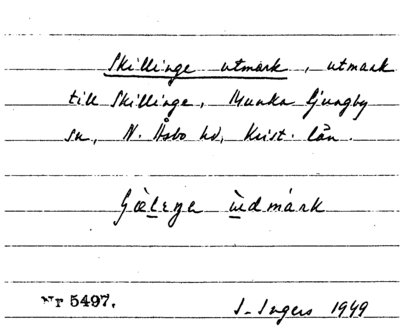 Skillinge utmark, utmark
till Skillinge, Munka Ljungby
sn, N. Åsbo hd, Krist. län.
ùdmárk
Nr 5497.
I. Ingers 1949